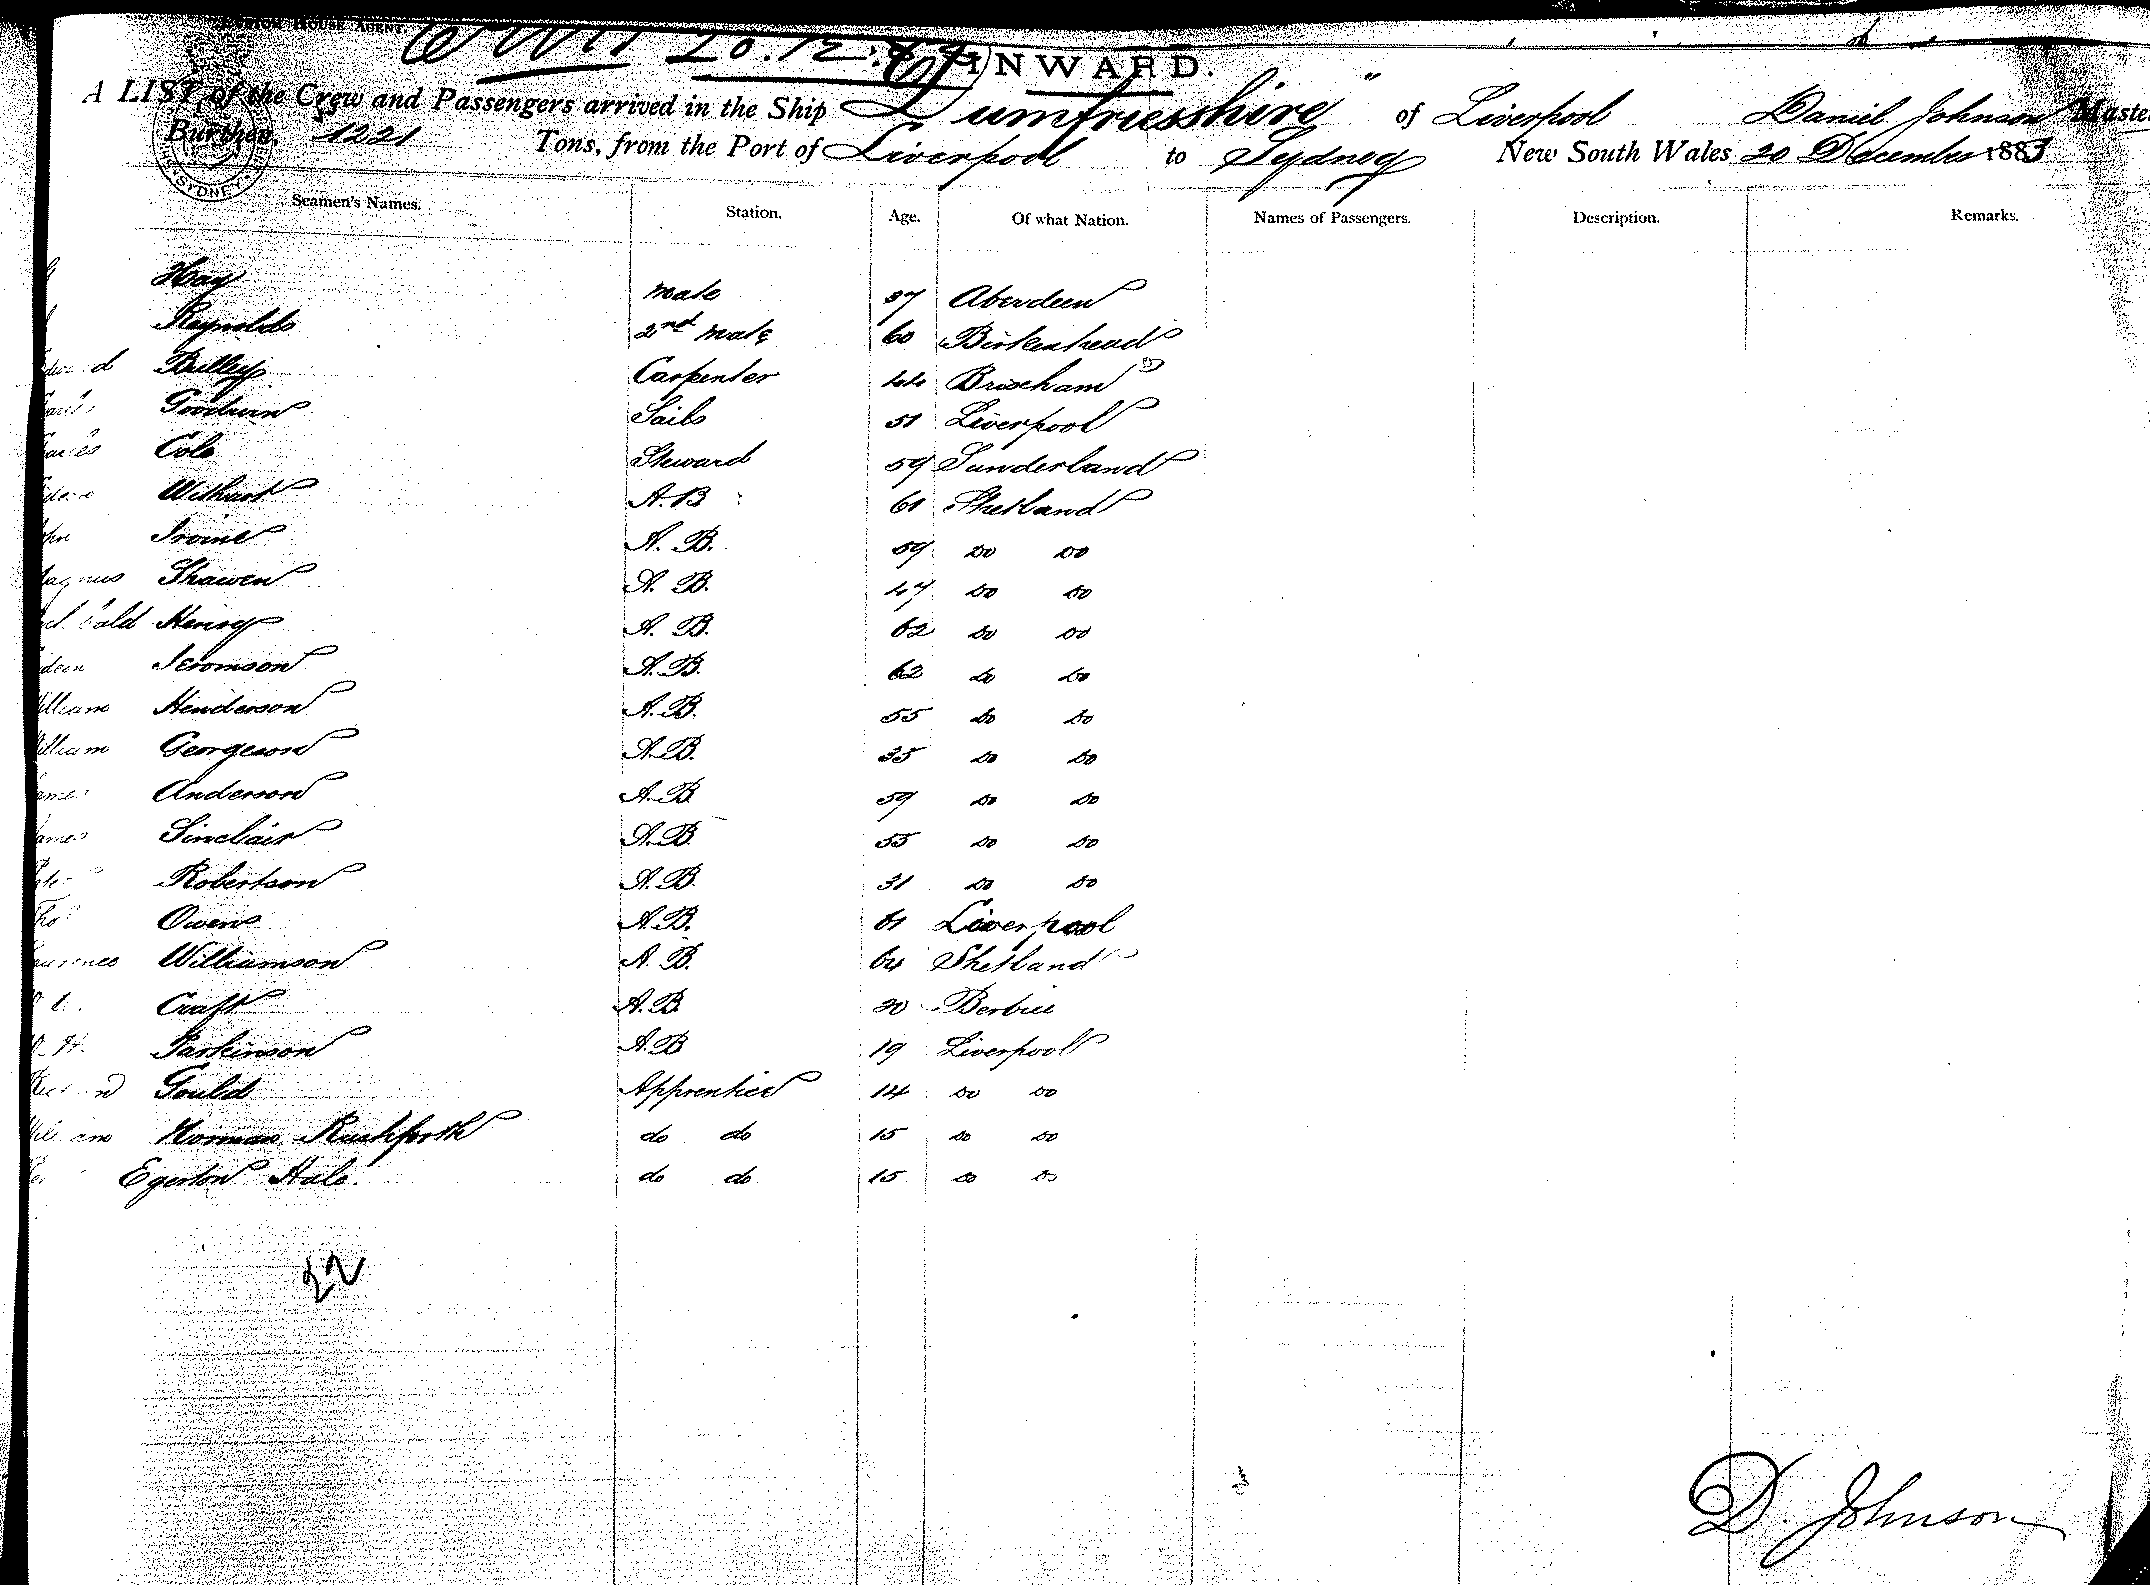 INWARD.
A LIST of the Crew and Passengers arrived in the Ship "Dumfriesshire" of Liverpool Daniel Johnson Master
Burthen, 1221 Tons, from the Port of Liverpool to Sydney New South Wales 20 December 1883
SYDNEY
Seamen's Names. Station. Age. Of what Nation. Names of Passengers. Description. Remarks.
Hay Mate 37 Aberdeen
Reynolds 2nd Mate 60 Birkenhead
Bulley Carpenter 44 Brixham
Goodwin Sails 51 Liverpool
Cole Steward 59 Sunderland
A.B 61 Shetland
Irvine A. B. 59 do do
Magnus A. B. 47 do do
Henry A. B. 62 do do
Jeromson A.B. 62 do do
William Henderson A.B. 55 do do
William Georgeson A.B. 35 do do
James Anderson A.B 59 do do
James Sinclair A.B. 55 do do
Robertson A.B. 31 do do
Tho Owens A.B. 61 Liverpool
Williamson A. B. 64 Shetland
Craft A.B 20 Berbice
Parkinson A.B 19 Liverpool
Gould Apprentice 14 do do
William Norman Rushforth do do 15 do do
Egerton Hale do do 15 do do
22
D. Johnson